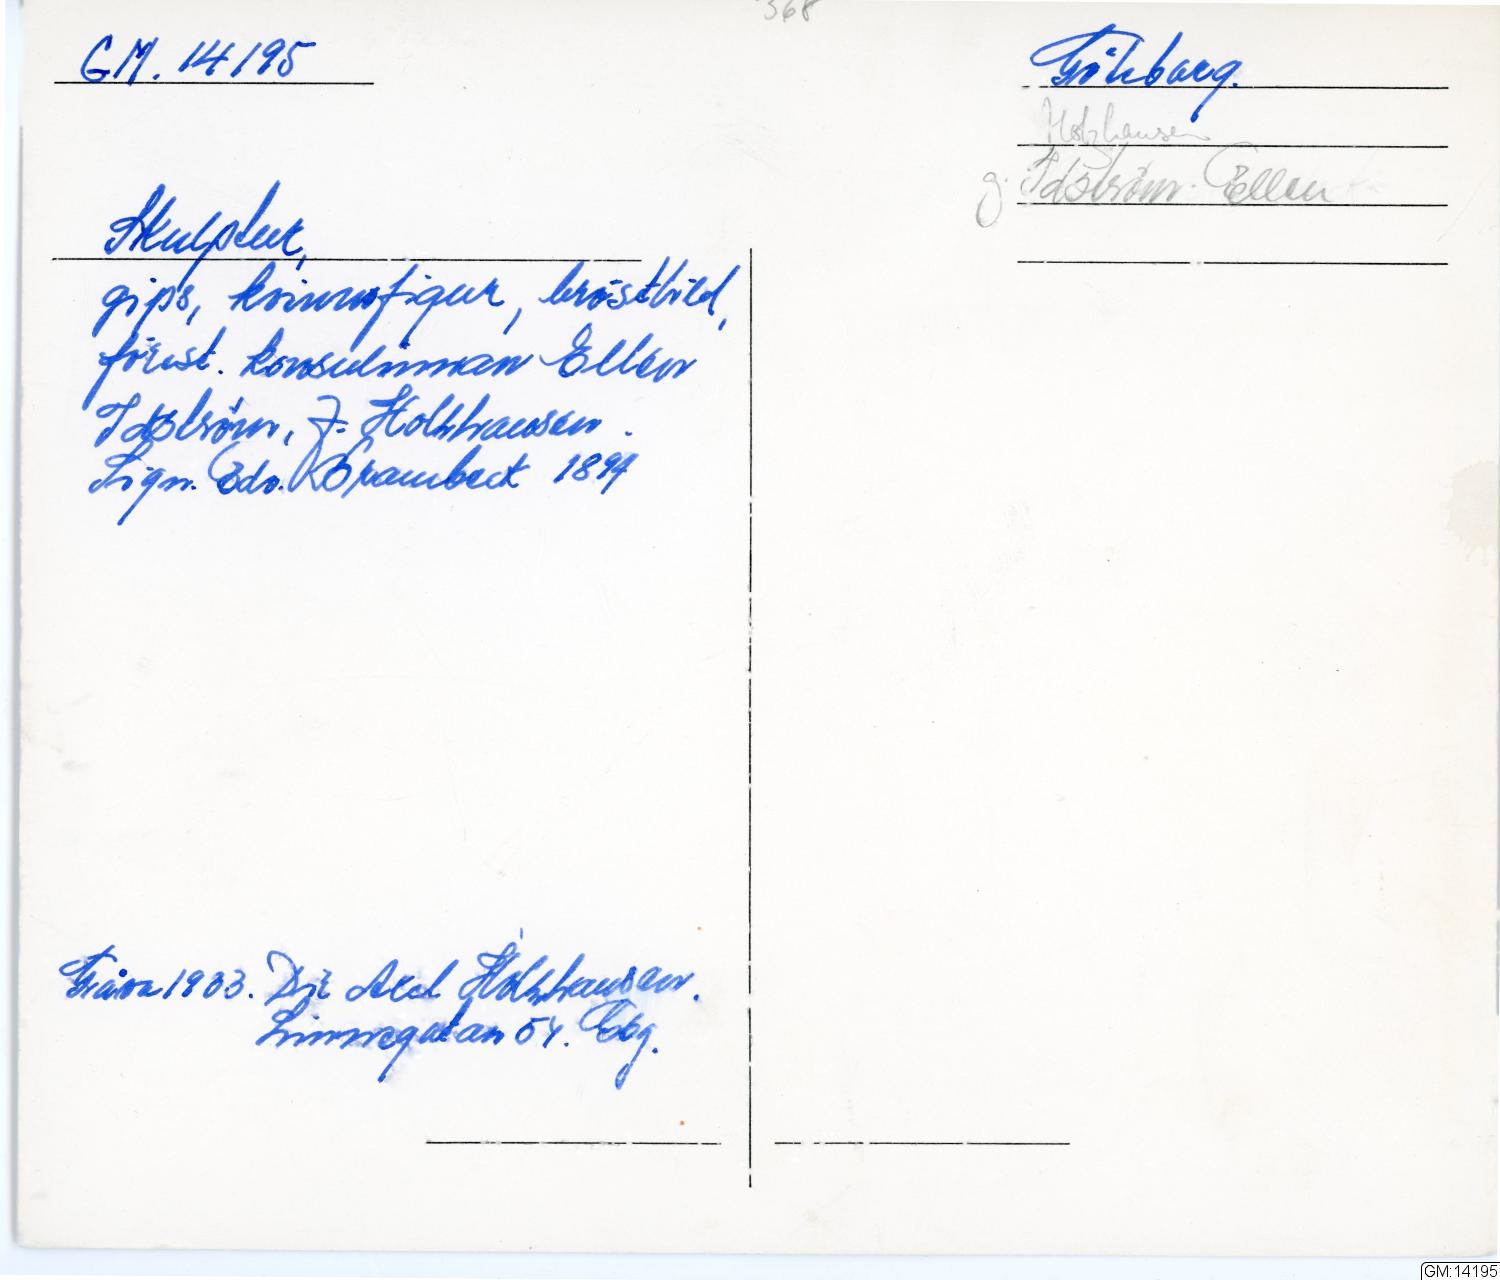 368
GM. 14195
Göteborg.
Holzhausen
g. Idström. Ellen
Skulptur,
gips, kvinnofigur, bröstbild,
förest. konsulinnan Ellen
Idström, f. Holtzhausen.
Sign. Edv. Brambeck 1894
Gåva 1933. Dir Axel Holtzhausen.
Linnégatan 54. Gbg.
GM:14195